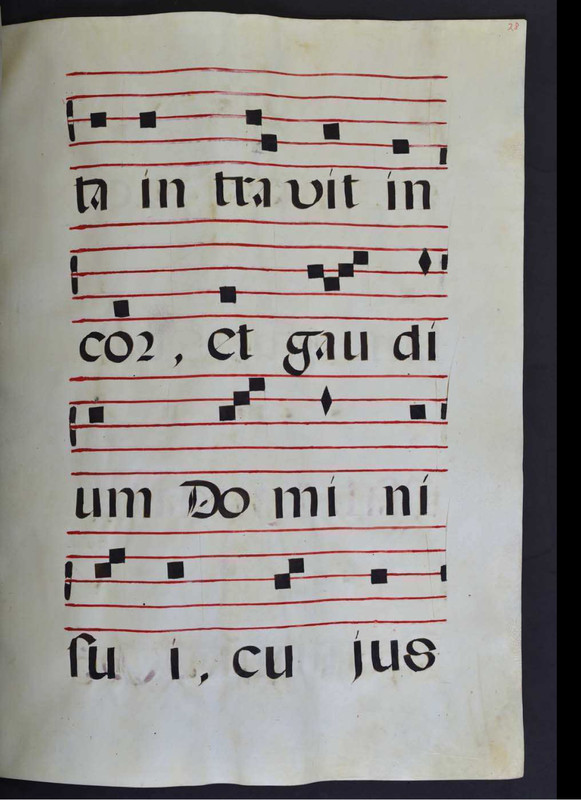 28
ta in tra vit in
cor, et gau di
um Do mi ni
su i, cu jus